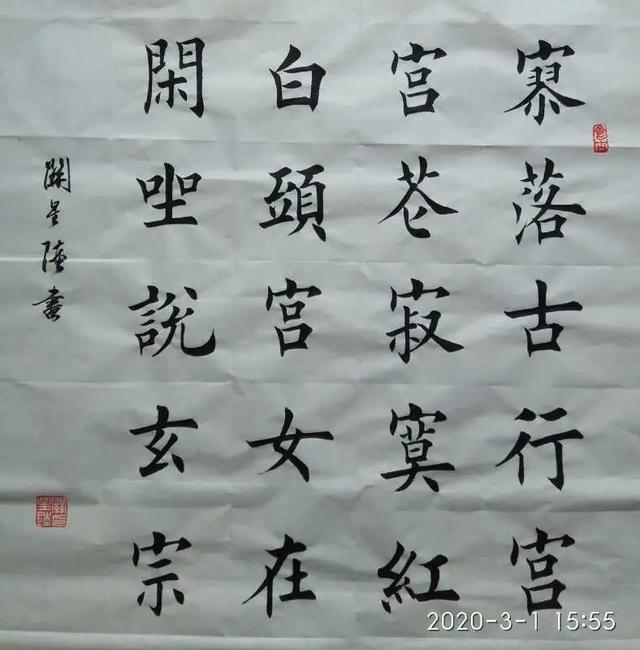 寥落古行宮
宮花寂寞紅
白頭宮女在
閑坐說玄宗
星陸書
2020-3-1 15:55